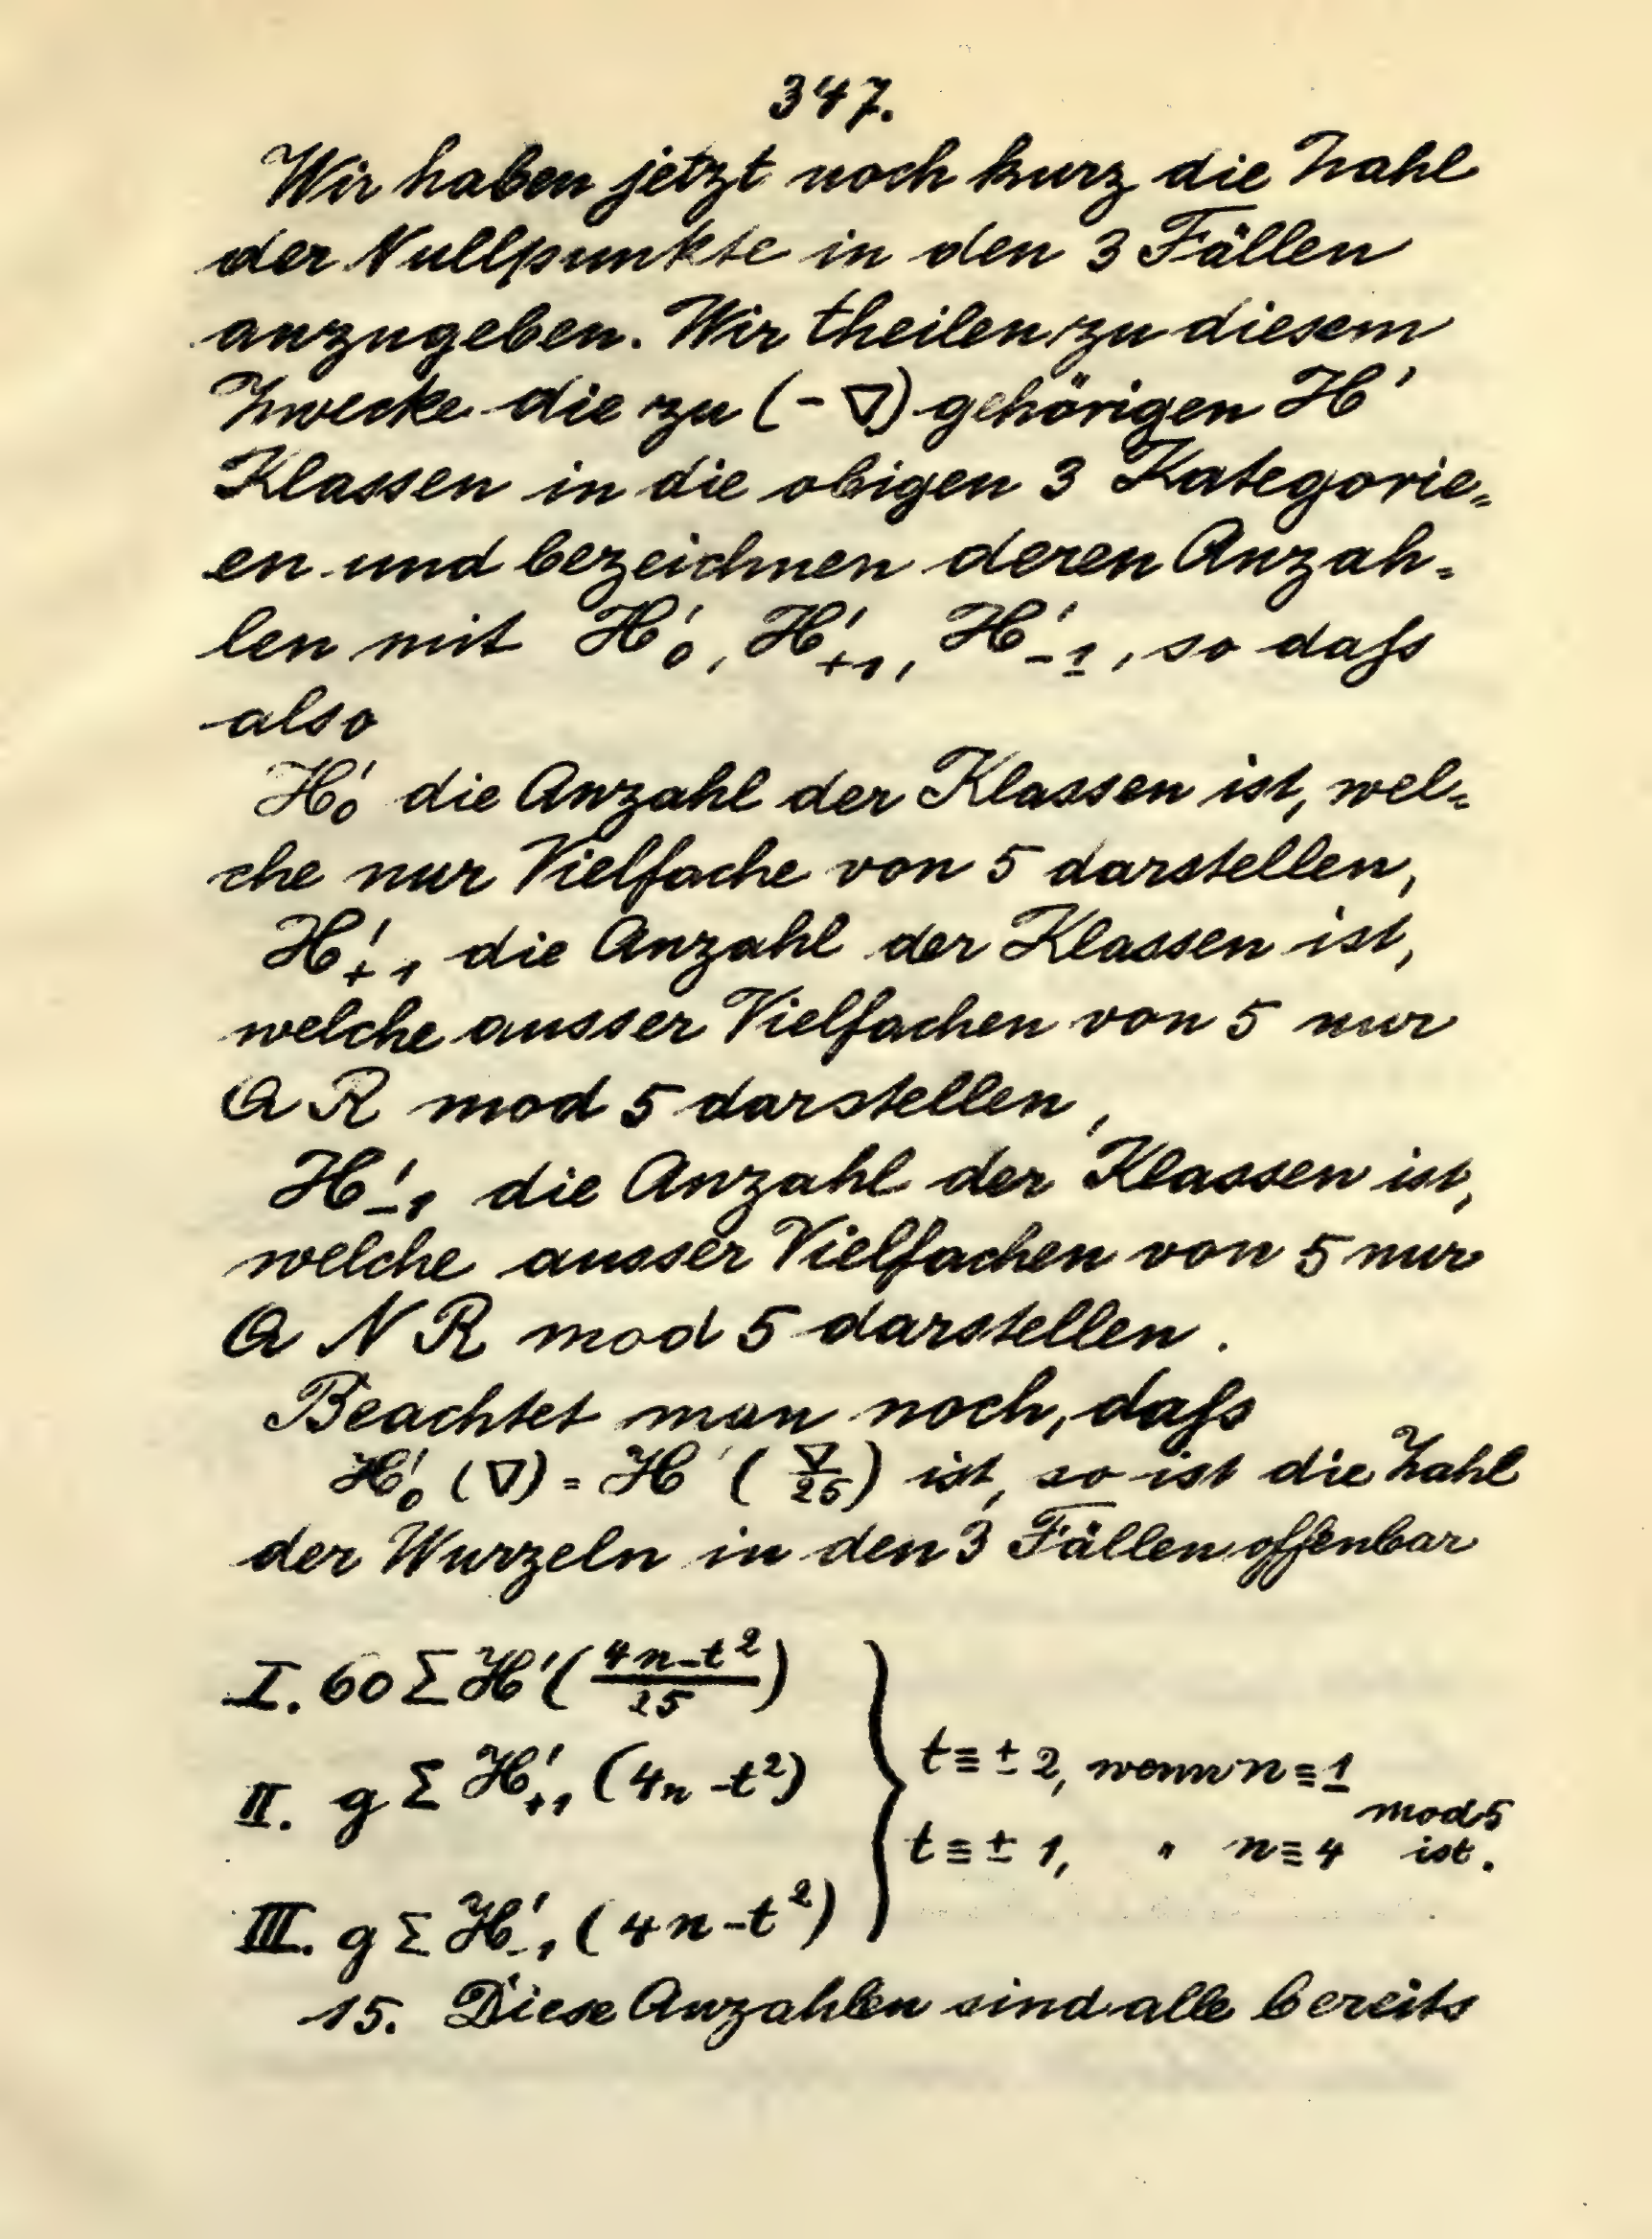 347.
Wir haben jetzt noch kurz die Zahl
der Nullpunkte in den 3 Fällen
anzugeben. Wir theilen zu diesem
Zwecke die zu (-∇) gehörigen H'
Klassen in die obigen 3 Kategorie=
en und bezeichnen deren Anzah=
len mit H'₀, H'₊₁, H'₋₁, so daſs
also
H'₀ die Anzahl der Klassen ist, wel=
che nur Vielfache von 5 darstellen,
H'₊₁ die Anzahl der Klassen ist,
welche ausser Vielfachen von 5 nur
Q R mod 5 darstellen,
H'₋₁ die Anzahl der Klassen ist,
welche ausser Vielfachen von 5 nur
Q N R mod 5 darstellen.
Beachtet man noch, daſs
H'₀ (∇) = H' (∇/25) ist, so ist die Zahl
der Wurzeln in den 3 Fällen offenbar
I. 60 Σ H' ((4n-t²)/25)
II. g Σ H'₊₁ (4n-t²)
III. g Σ H'₋₁ (4n-t²)
t ≡ ± 2, wenn n ≡ 1
mod 5
t ≡ ± 1, " n ≡ 4 ist.
15. Diese Anzahlen sind alle bereits